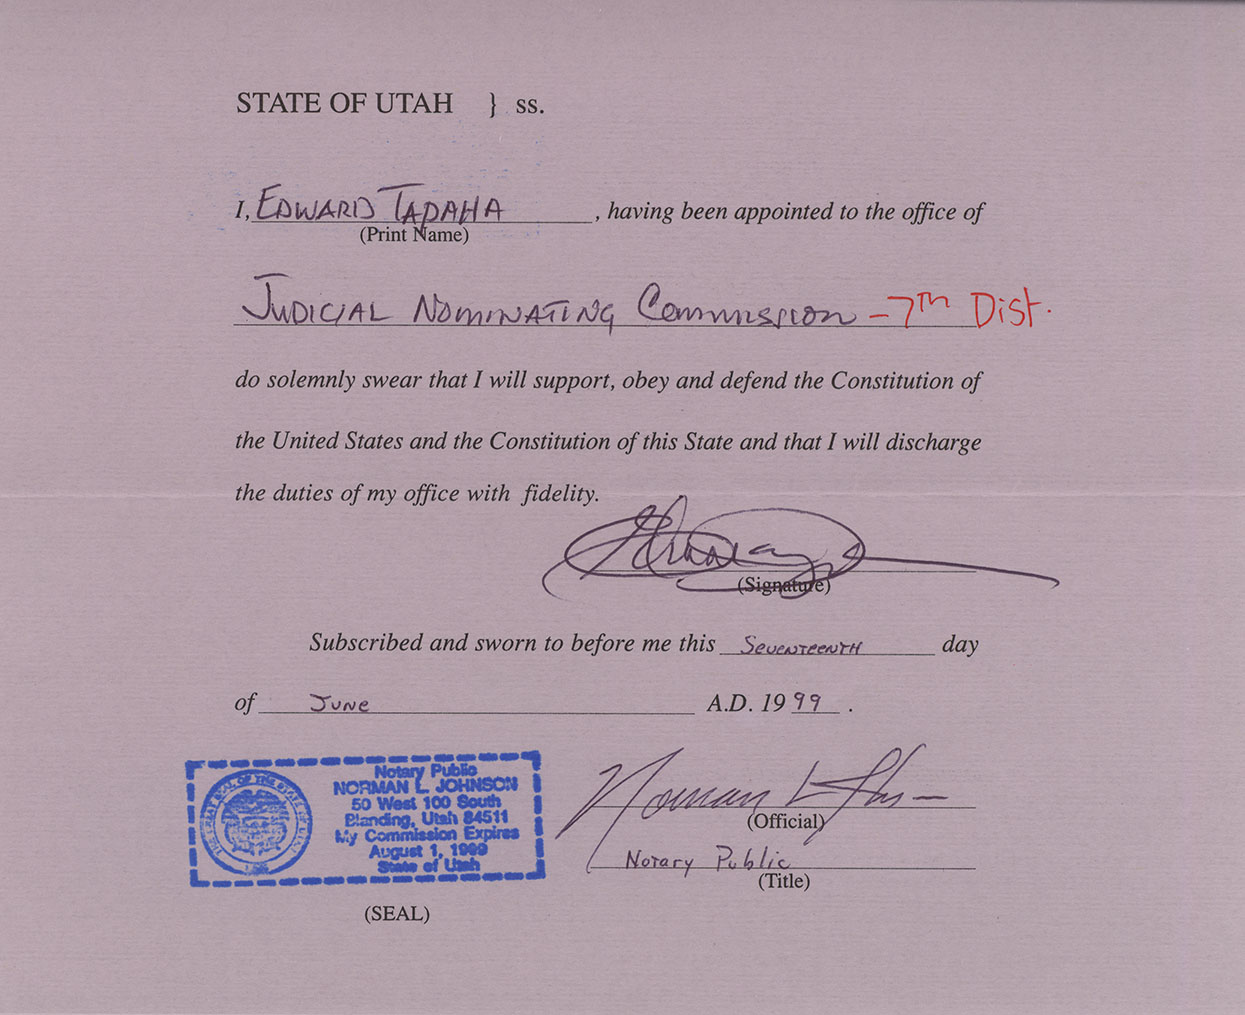 STATE OF UTAH } ss.
I, EDWARD TAPAHA, having been appointed to the office of
(Print Name)
JUDICIAL NOMINATING COMMISSION - 7TH DIST.
do solemnly swear that I will support, obey and defend the Constitution of
the United States and the Constitution of this State and that I will discharge
the duties of my office with fidelity.
(Signature)
Subscribed and sworn to before me this SEVENTEENTH day
of JUNE A.D. 1999.
Notary Public
NORMAN L. JOHNSON
50 West 100 South
Blanding, Utah 84511
My Commission Expires
August 1, 1999
State of Utah
(SEAL)
Norman L Johnson
(Official)
Notary Public
(Title)